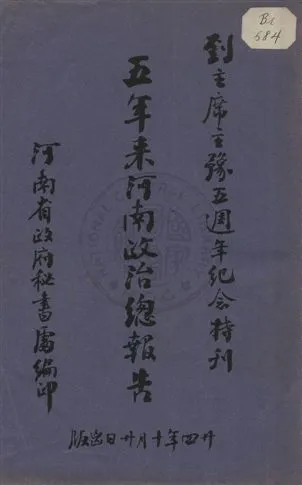 584
劉主席主豫五週年紀念特刊
五年來河南政治總報告
河南省政府秘書處編印
廿四年十月廿日出版